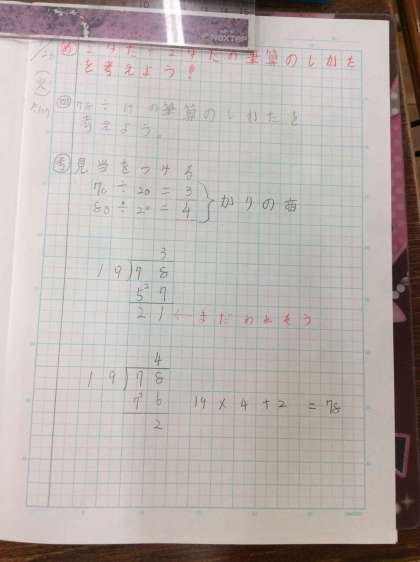 NEXTEP
め 2けた÷2けたの筆算のしかた
を考えよう！
問 78÷19の筆算のしかたを
考えよう。
考 見当をつける
70÷20=3
80÷20=4
かりの商
3
19)78
57
21 ← まだわれそう
4
19)78
76
2
19×4+2=78